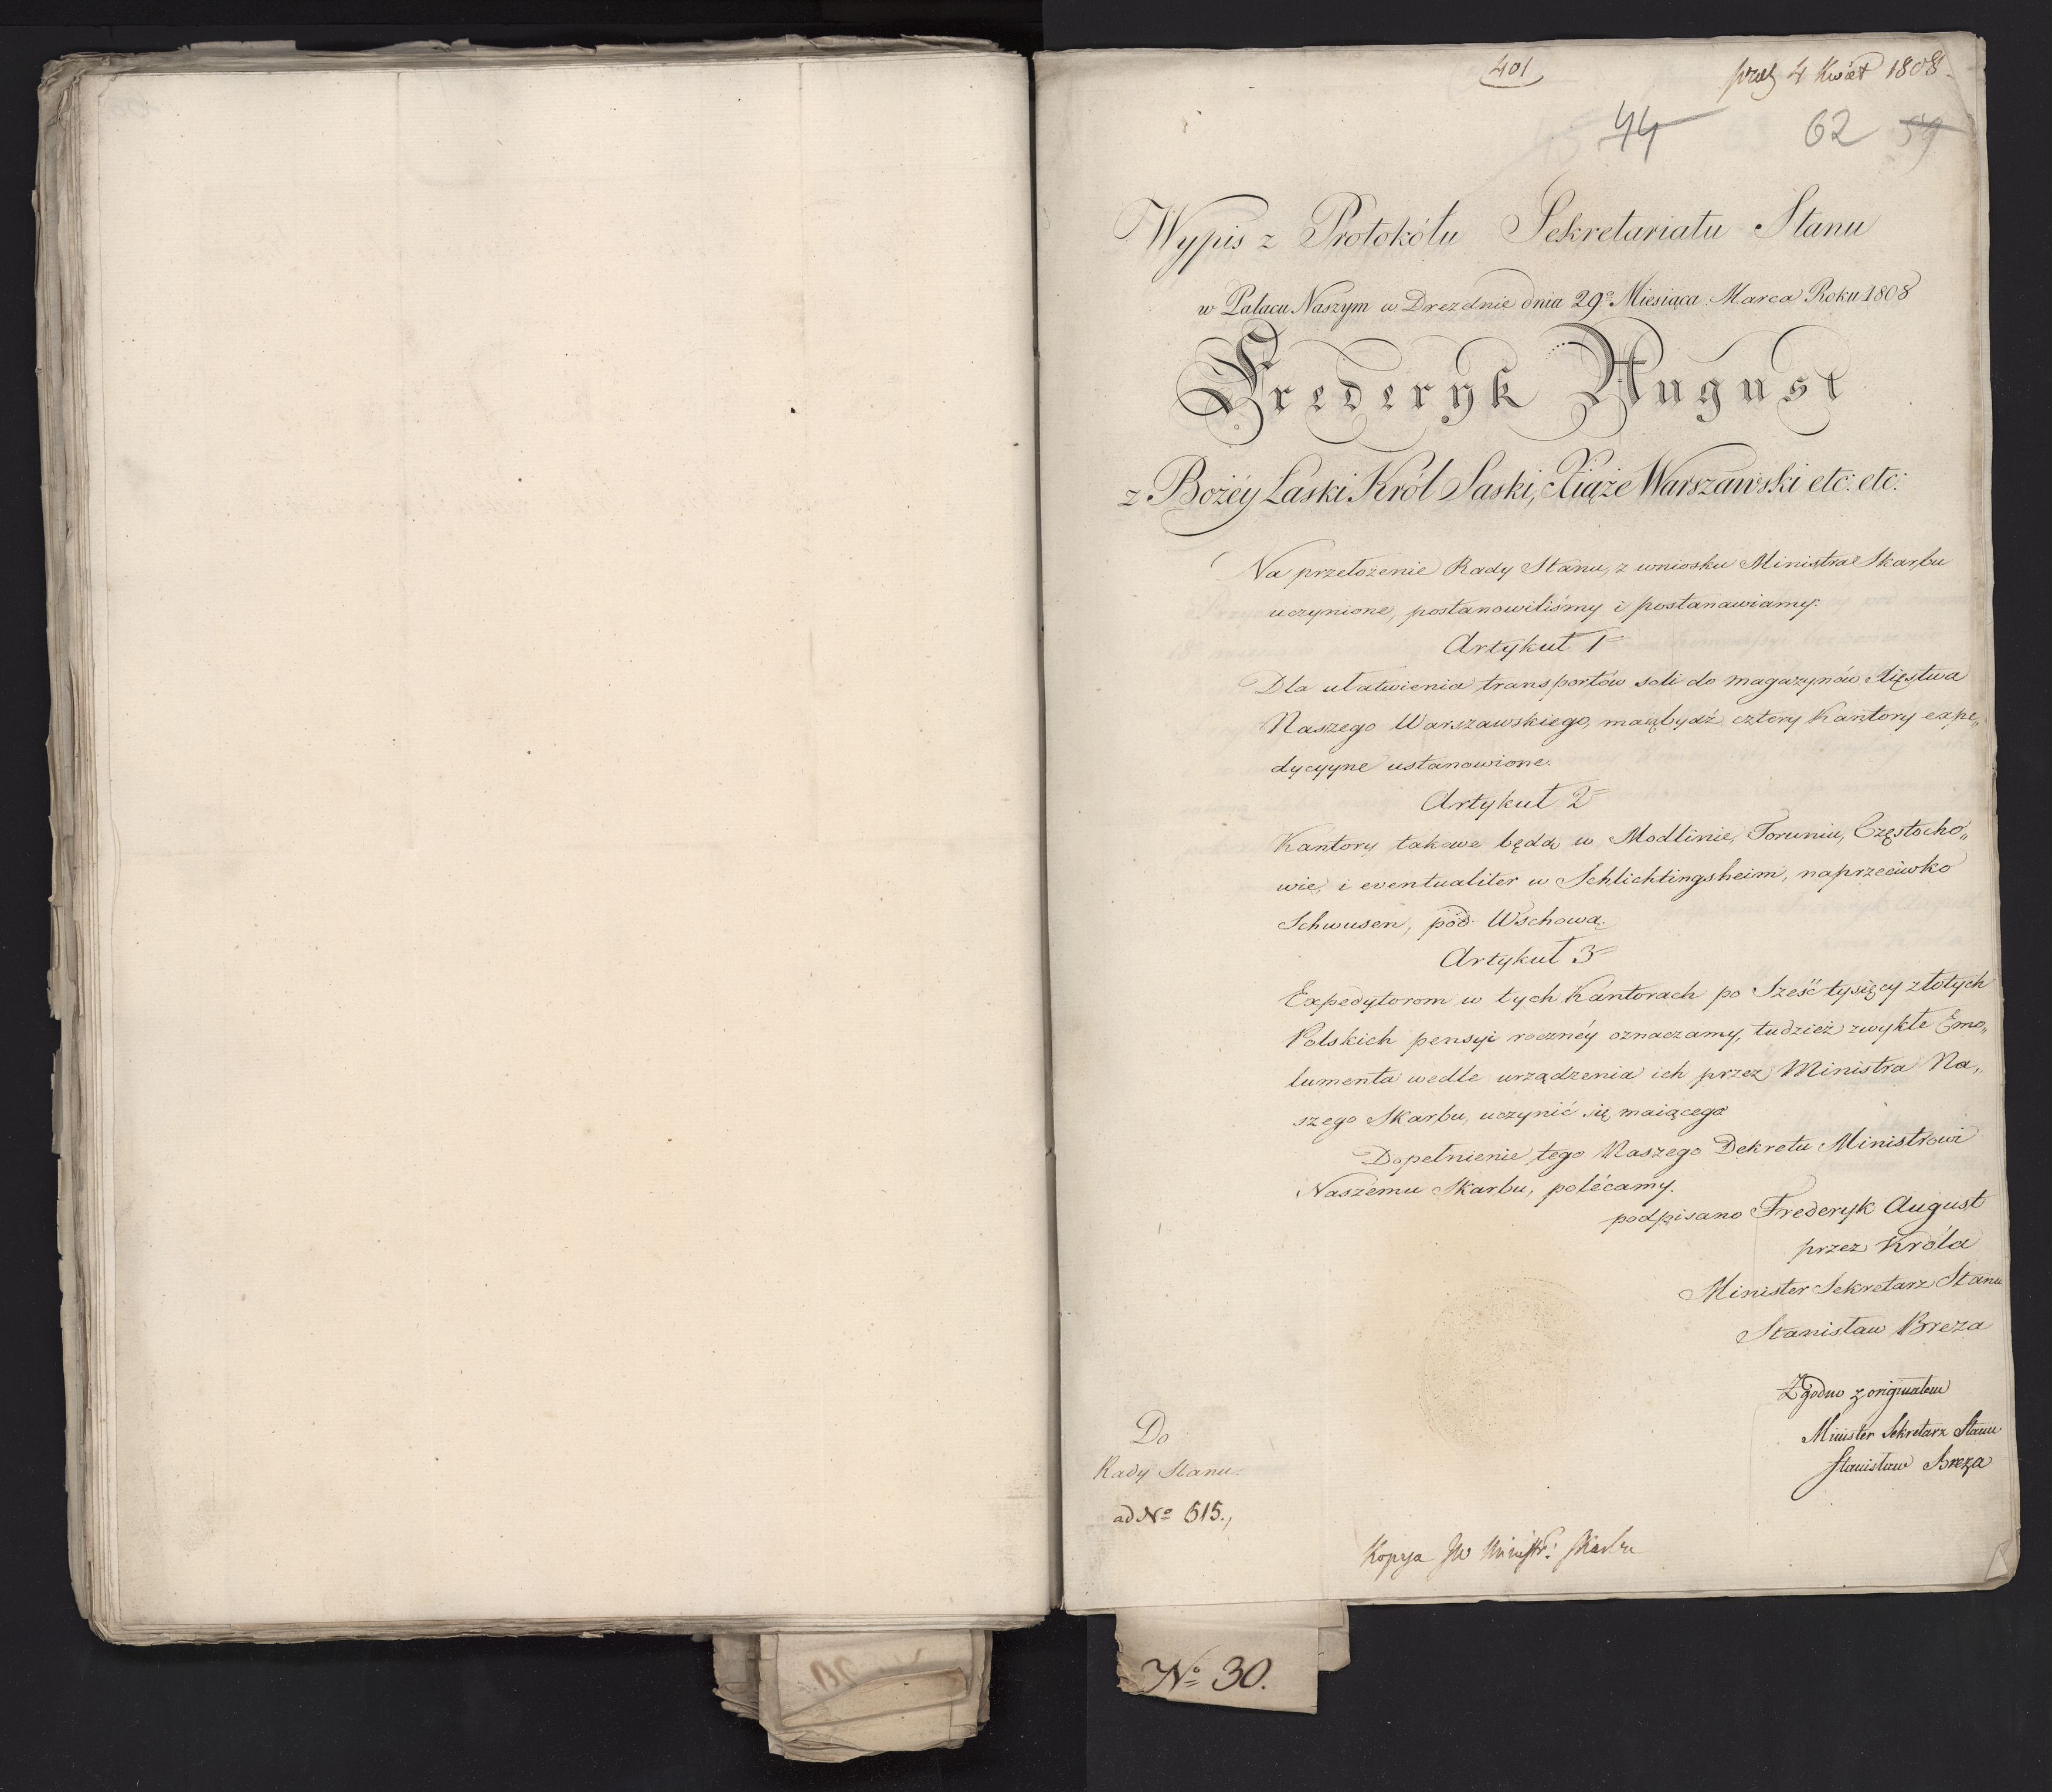 401
4 Kwiet 1808
44
62 59
Wypis z Protokółu Sekretariatu Stanu
w Pałacu Naszym w Dreźdnie dnia 29º Miesiąca Marca Roku 1808
Frederyk August
z Bożéy Łaski Król Saski, Xiąże Warszawski etc: etc:
Na przełożenie Rady Stanu, z wniosku Ministra Skarbu
uczynione, postanowiliśmy i postanawiamy:
Artykuł 1
Dla ułatwienia transportów soli do magazynów Xięstwa
Naszego Warszawskiego, maią bydź cztery Kantory expe„
dycyyne ustanowione.
Artykuł 2
Kantory takowe będą w Modlinie, Toruniu, Częstocho„
wie, i eventualiter w Schlichtingsheim, naprzeciwko
Schwusen, pod Wschową.
Artykuł 3
Expedytorom w tych Kantorach po Sześć tysięcy złotych
Polskich pensyi rocznéy oznaczamy, tudzież zwykłe Emo„
lumenta wedle urządzenia ich przez Ministra Na„
szego Skarbu, uczynić się maiącego
Dopełnienie tego Naszego Dekretu Ministrowi
Naszemu Skarbu, polécamy.
podpisano Frederyk August
przez Króla
Minister Sekretarz Stanu
Stanisław Breza
Zgodno z originałem
Minister Sekretarz Stanu
Stanisław Breza
Do
Rady Stanu
ad Nº 515.,
Kopya JW Ministr: Skarbu
Nº 30.